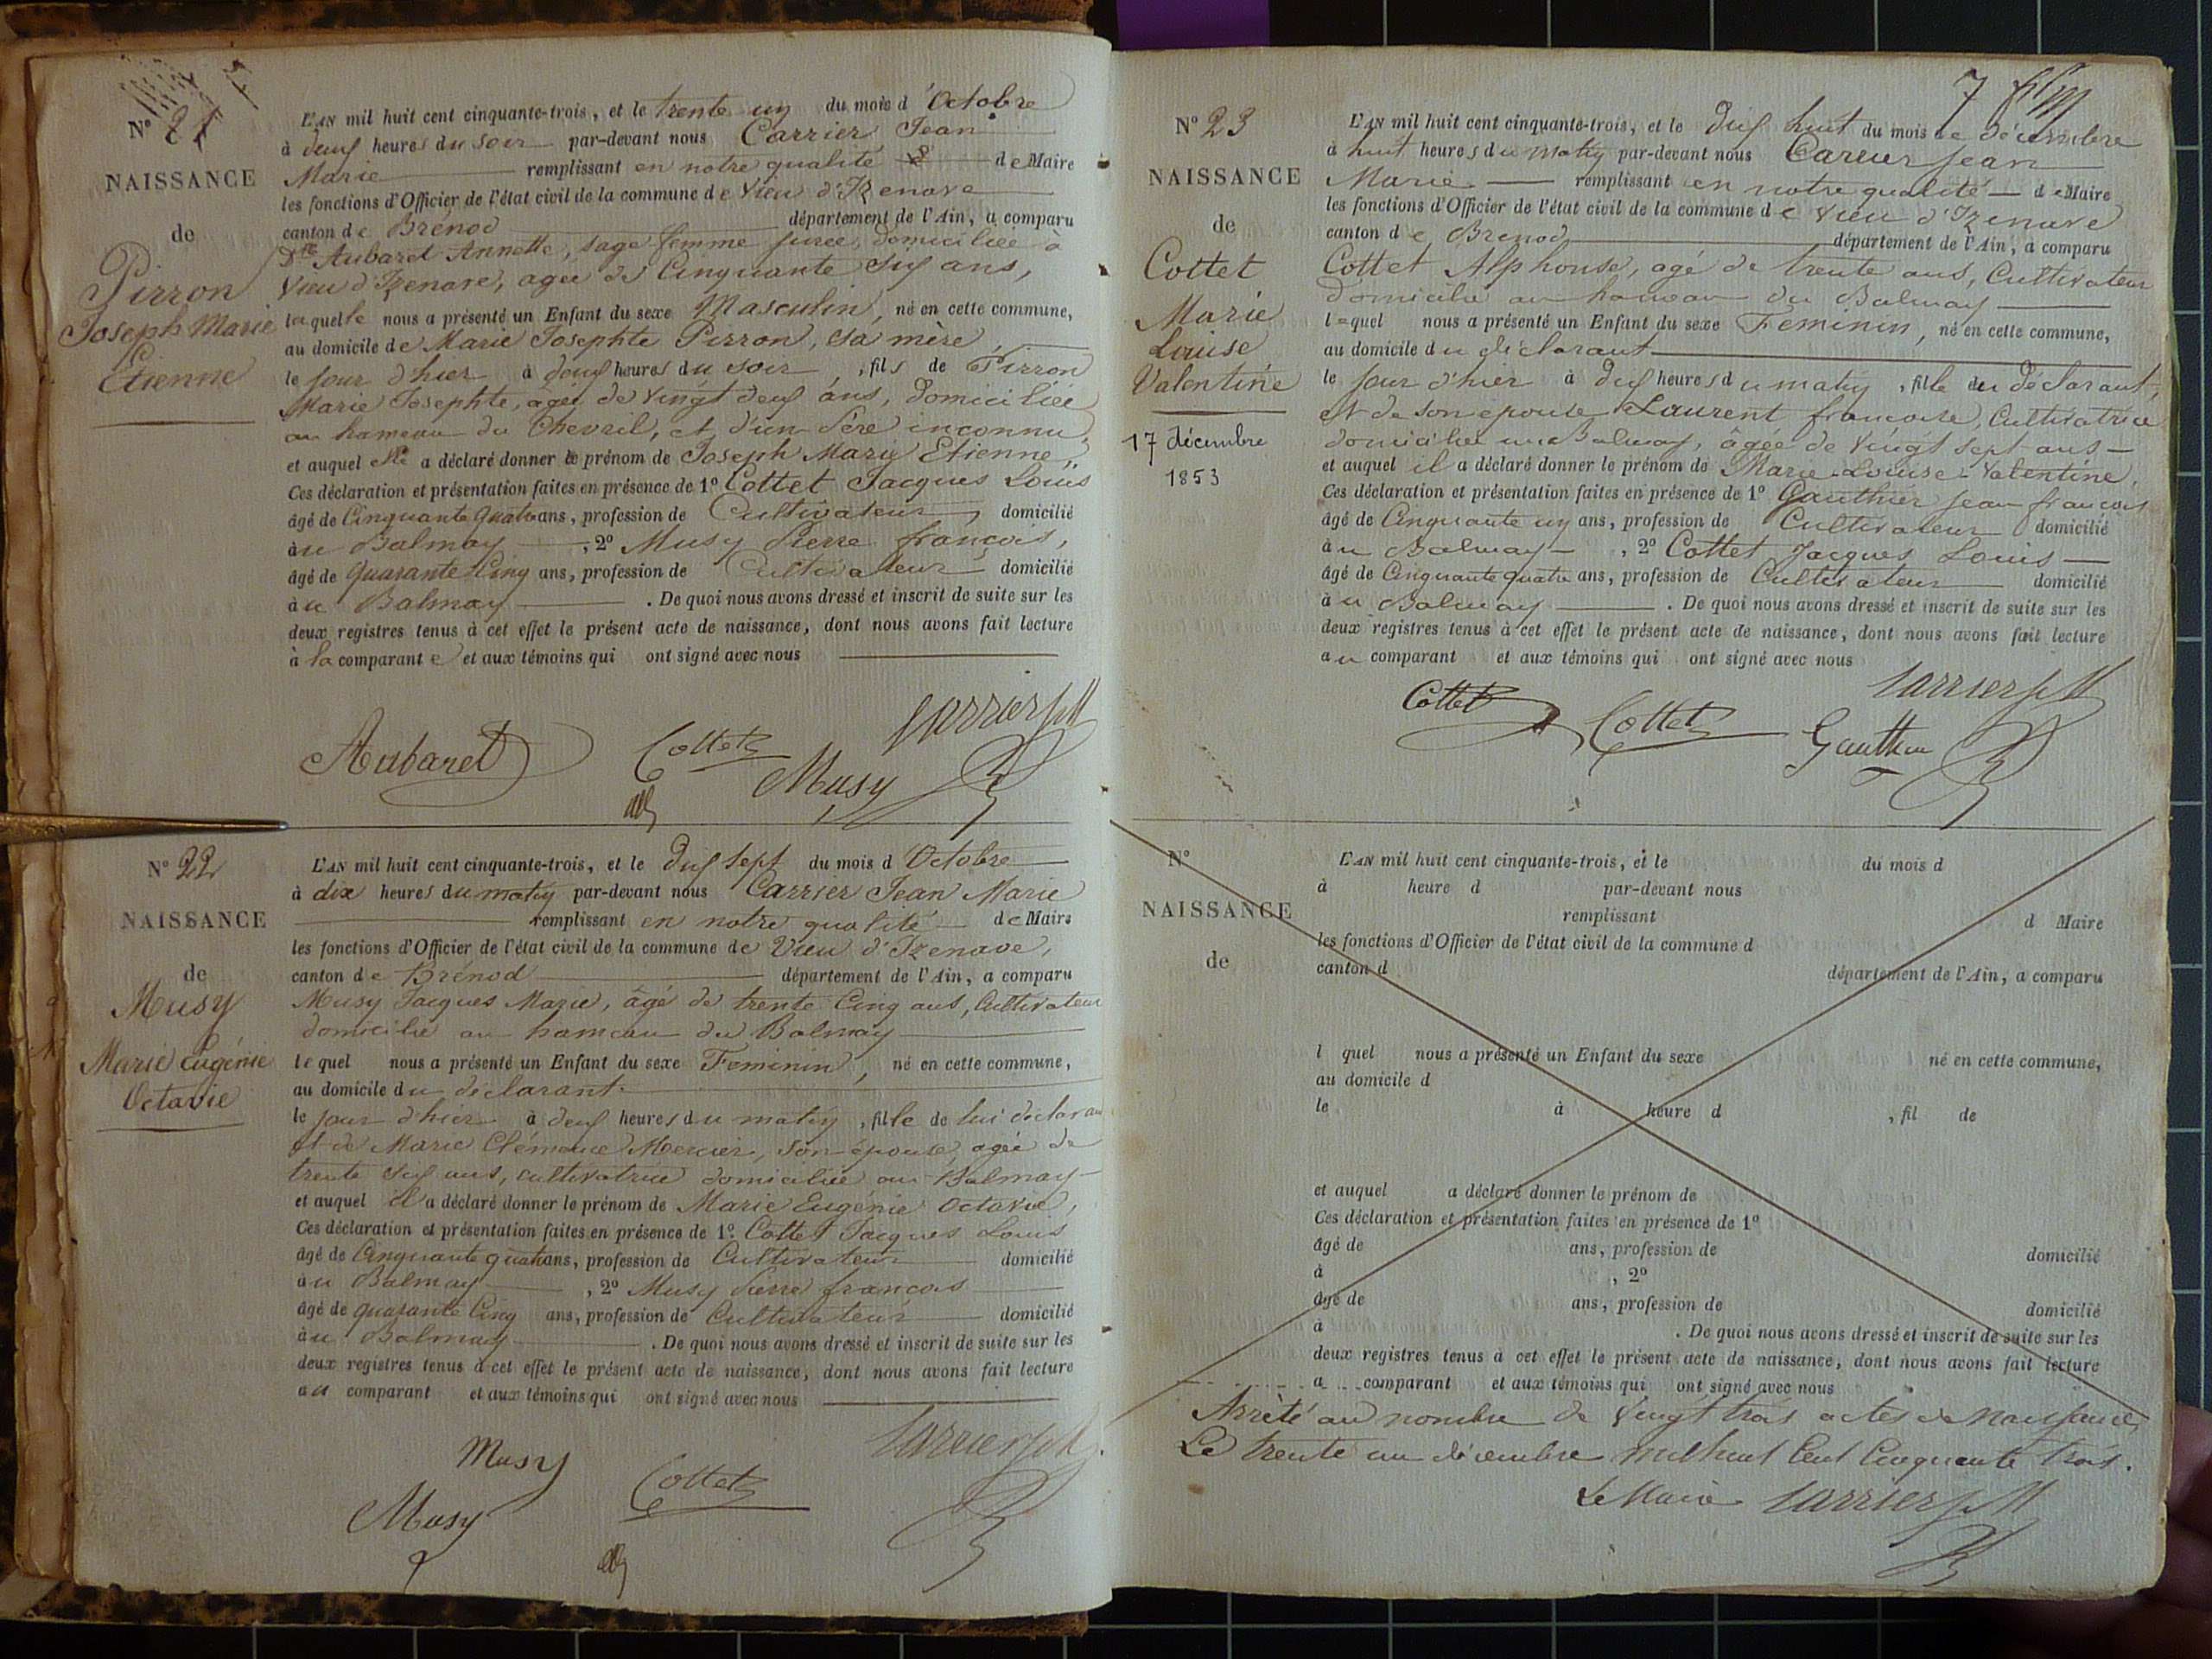 N° 21
NAISSANCE
de
Pirron
Joseph Marie
Etienne
L'AN mil huit cent cinquante-trois, et le trente un du mois d'Octobre
à deux heures du soir par-devant nous Carrier Jean
Marie remplissant en notre qualité de Maire
les fonctions d'Officier de l'état civil de la commune de Vieu d'Izenave
canton de Brénod département de l'Ain, a comparu
Dlle Aubaret Annette, sage femme jurée, domiciliée à
Vieu d'Izenave, agée de Cinquante six ans,
laquelle nous a présenté un Enfant du sexe Masculin, né en cette commune,
au domicile de Marie Josephte Pirron, sa mère,
le jour d'hier à deux heures du soir, fils de Pirron
Marie Josephte, agée de vingt deux ans, domiciliée
au hameau du Chevril, et d'un Père inconnu,
et auquel elle a déclaré donner le prénom de Joseph Marie Etienne,
Ces déclaration et présentation faites en présence de 1° Cottet Jacques Louis
âgé de Cinquante quatre ans, profession de Cultivateur, domicilié
au Balmay, 2° Musy Pierre françois,
âgé de quarante Cinq ans, profession de Cultivateur domicilié
au Balmay. De quoi nous avons dressé et inscrit de suite sur les
deux registres tenus à cet effet le présent acte de naissance, dont nous avons fait lecture
à la comparante et aux témoins qui ont signé avec nous
Aubaret Cottet Musy Carrier JM
N° 22
NAISSANCE
de
Musy
Marie Eugénie
Octavie
L'AN mil huit cent cinquante-trois, et le dix sept du mois d'Octobre
à dix heures du matin par-devant nous Carrier Jean Marie
remplissant en notre qualité de Maire
les fonctions d'Officier de l'état civil de la commune de Vieu d'Izenave,
canton de Brénod département de l'Ain, a comparu
Musy Jacques Marie, âgé de trente Cinq ans, Cultivateur
domicilié au hameau du Balmay
lequel nous a présenté un Enfant du sexe Feminin, né en cette commune,
au domicile du déclarant
le jour d'hier à deux heures du matin, fille de lui déclarant
et de Marie Clémence Mercier, son épouse, agée de
trente six ans, cultivatrice domiciliée au Balmay
et auquel il a déclaré donner le prénom de Marie Eugénie Octavie,
Ces déclaration et présentation faites en présence de 1° Cottet Jacques Louis
âgé de Cinquante quatre ans, profession de Cultivateur domicilié
au Balmay, 2° Musy Pierre francois
âgé de quarante Cinq ans, profession de Cultivateur domicilié
au Balmay. De quoi nous avons dressé et inscrit de suite sur les
deux registres tenus à cet effet le présent acte de naissance, dont nous avons fait lecture
au comparant et aux témoins qui ont signé avec nous
Musy Carrier JM
Musy Cottet
7
N° 23
NAISSANCE
de
Cottet
Marie
Louise
Valentine
17 décembre
1853
L'AN mil huit cent cinquante-trois, et le dix huit du mois de décembre
à huit heures du matin par-devant nous Carrier Jean
Marie remplissant en notre qualité de Maire
les fonctions d'Officier de l'état civil de la commune de Vieu d'Izenave
canton de Brenod département de l'Ain, a comparu
Cottet Alphonse, agé de trente ans, Cultivateur
domicilié au hameau du Balmay
lequel nous a présenté un Enfant du sexe Feminin, né en cette commune,
au domicile du déclarant
le jour d'hier à dix heures du matin, fille du déclarant,
et de son épouse Laurent francoise, Cultivatrice
domiciliée au Balmay, âgée de vingt sept ans
et auquel il a déclaré donner le prénom de Marie Louise Valentine,
Ces déclaration et présentation faites en présence de 1° Gauthier Jean francois
âgé de Cinquante un ans, profession de Cultivateur domicilié
au Balmay, 2° Cottet Jacques Louis
âgé de Cinquante quatre ans, profession de Cultivateur domicilié
au Balmay. De quoi nous avons dressé et inscrit de suite sur les
deux registres tenus à cet effet le présent acte de naissance, dont nous avons fait lecture
au comparant et aux témoins qui ont signé avec nous
Cottet Cottet Gauthier Carrier JM
N°
NAISSANCE
de
L'AN mil huit cent cinquante-trois, et le du mois d
à heure d par-devant nous
remplissant d Maire
les fonctions d'Officier de l'état civil de la commune d
canton d département de l'Ain, a comparu
l quel nous a présenté un Enfant du sexe né en cette commune,
au domicile d
le à heure d , fil de
et auquel a déclaré donner le prénom de
Ces déclaration et présentation faites en présence de 1°
âgé de ans, profession de domicilié
à , 2°
âgé de ans, profession de domicilié
à . De quoi nous avons dressé et inscrit de suite sur les
deux registres tenus à cet effet le présent acte de naissance, dont nous avons fait lecture
a comparant et aux témoins qui ont signé avec nous
Arrêté au nombre de vingt trois actes de naissance,
Le trente un décembre mil huit Cent Cinquante trois.
Le Maire Carrier JM